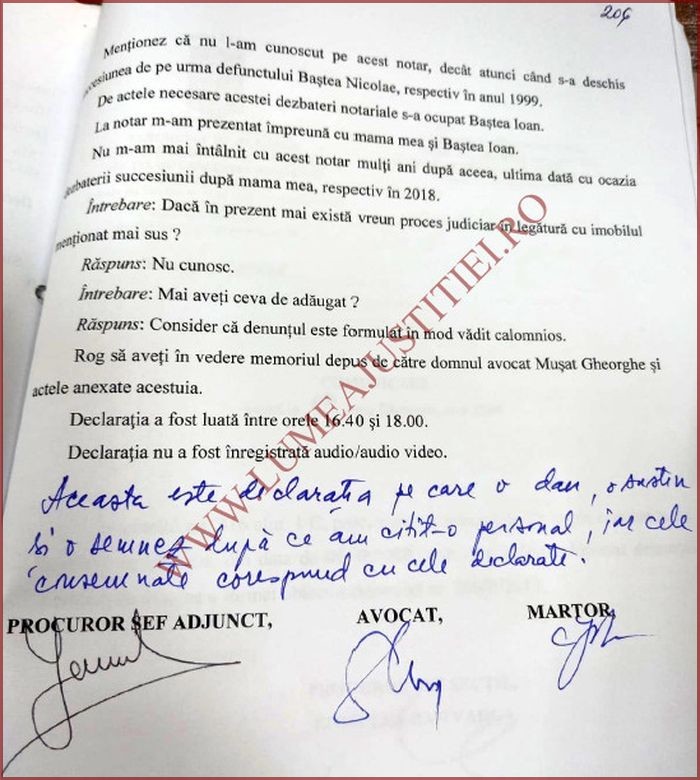 206
Menționez că nu l-am cunoscut pe acest notar, decât atunci când s-a deschis
succesiunea de pe urma defunctului Baștea Nicolae, respectiv în anul 1999.
De actele necesare acestei dezbateri notariale s-a ocupat Baștea Ioan.
La notar m-am prezentat împreună cu mama mea și Baștea Ioan.
Nu m-am mai întâlnit cu acest notar mulți ani după aceea, ultima dată cu ocazia
dezbaterii succesiunii după mama mea, respectiv în 2018.
Întrebare: Dacă în prezent mai există vreun proces judiciar în legătură cu imobilul
menționat mai sus ?
Răspuns: Nu cunosc.
Întrebare: Mai aveți ceva de adăugat ?
Răspuns: Consider că denunțul este formulat în mod vădit calomnios.
Rog să aveți în vedere memoriul depus de către domnul avocat Mușat Gheorghe și
actele anexate acestuia.
Declarația a fost luată între orele 16.40 și 18.00.
Declarația nu a fost înregistrată audio/audio video.
Aceasta este declarația pe care o dau, o susțin
și o semnez după ce am citit-o personal, iar cele
consemnate corespund cu cele declarate.
PROCUROR ȘEF ADJUNCT, AVOCAT, MARTOR,
WWW.LUMEAJUSTITIEI.RO